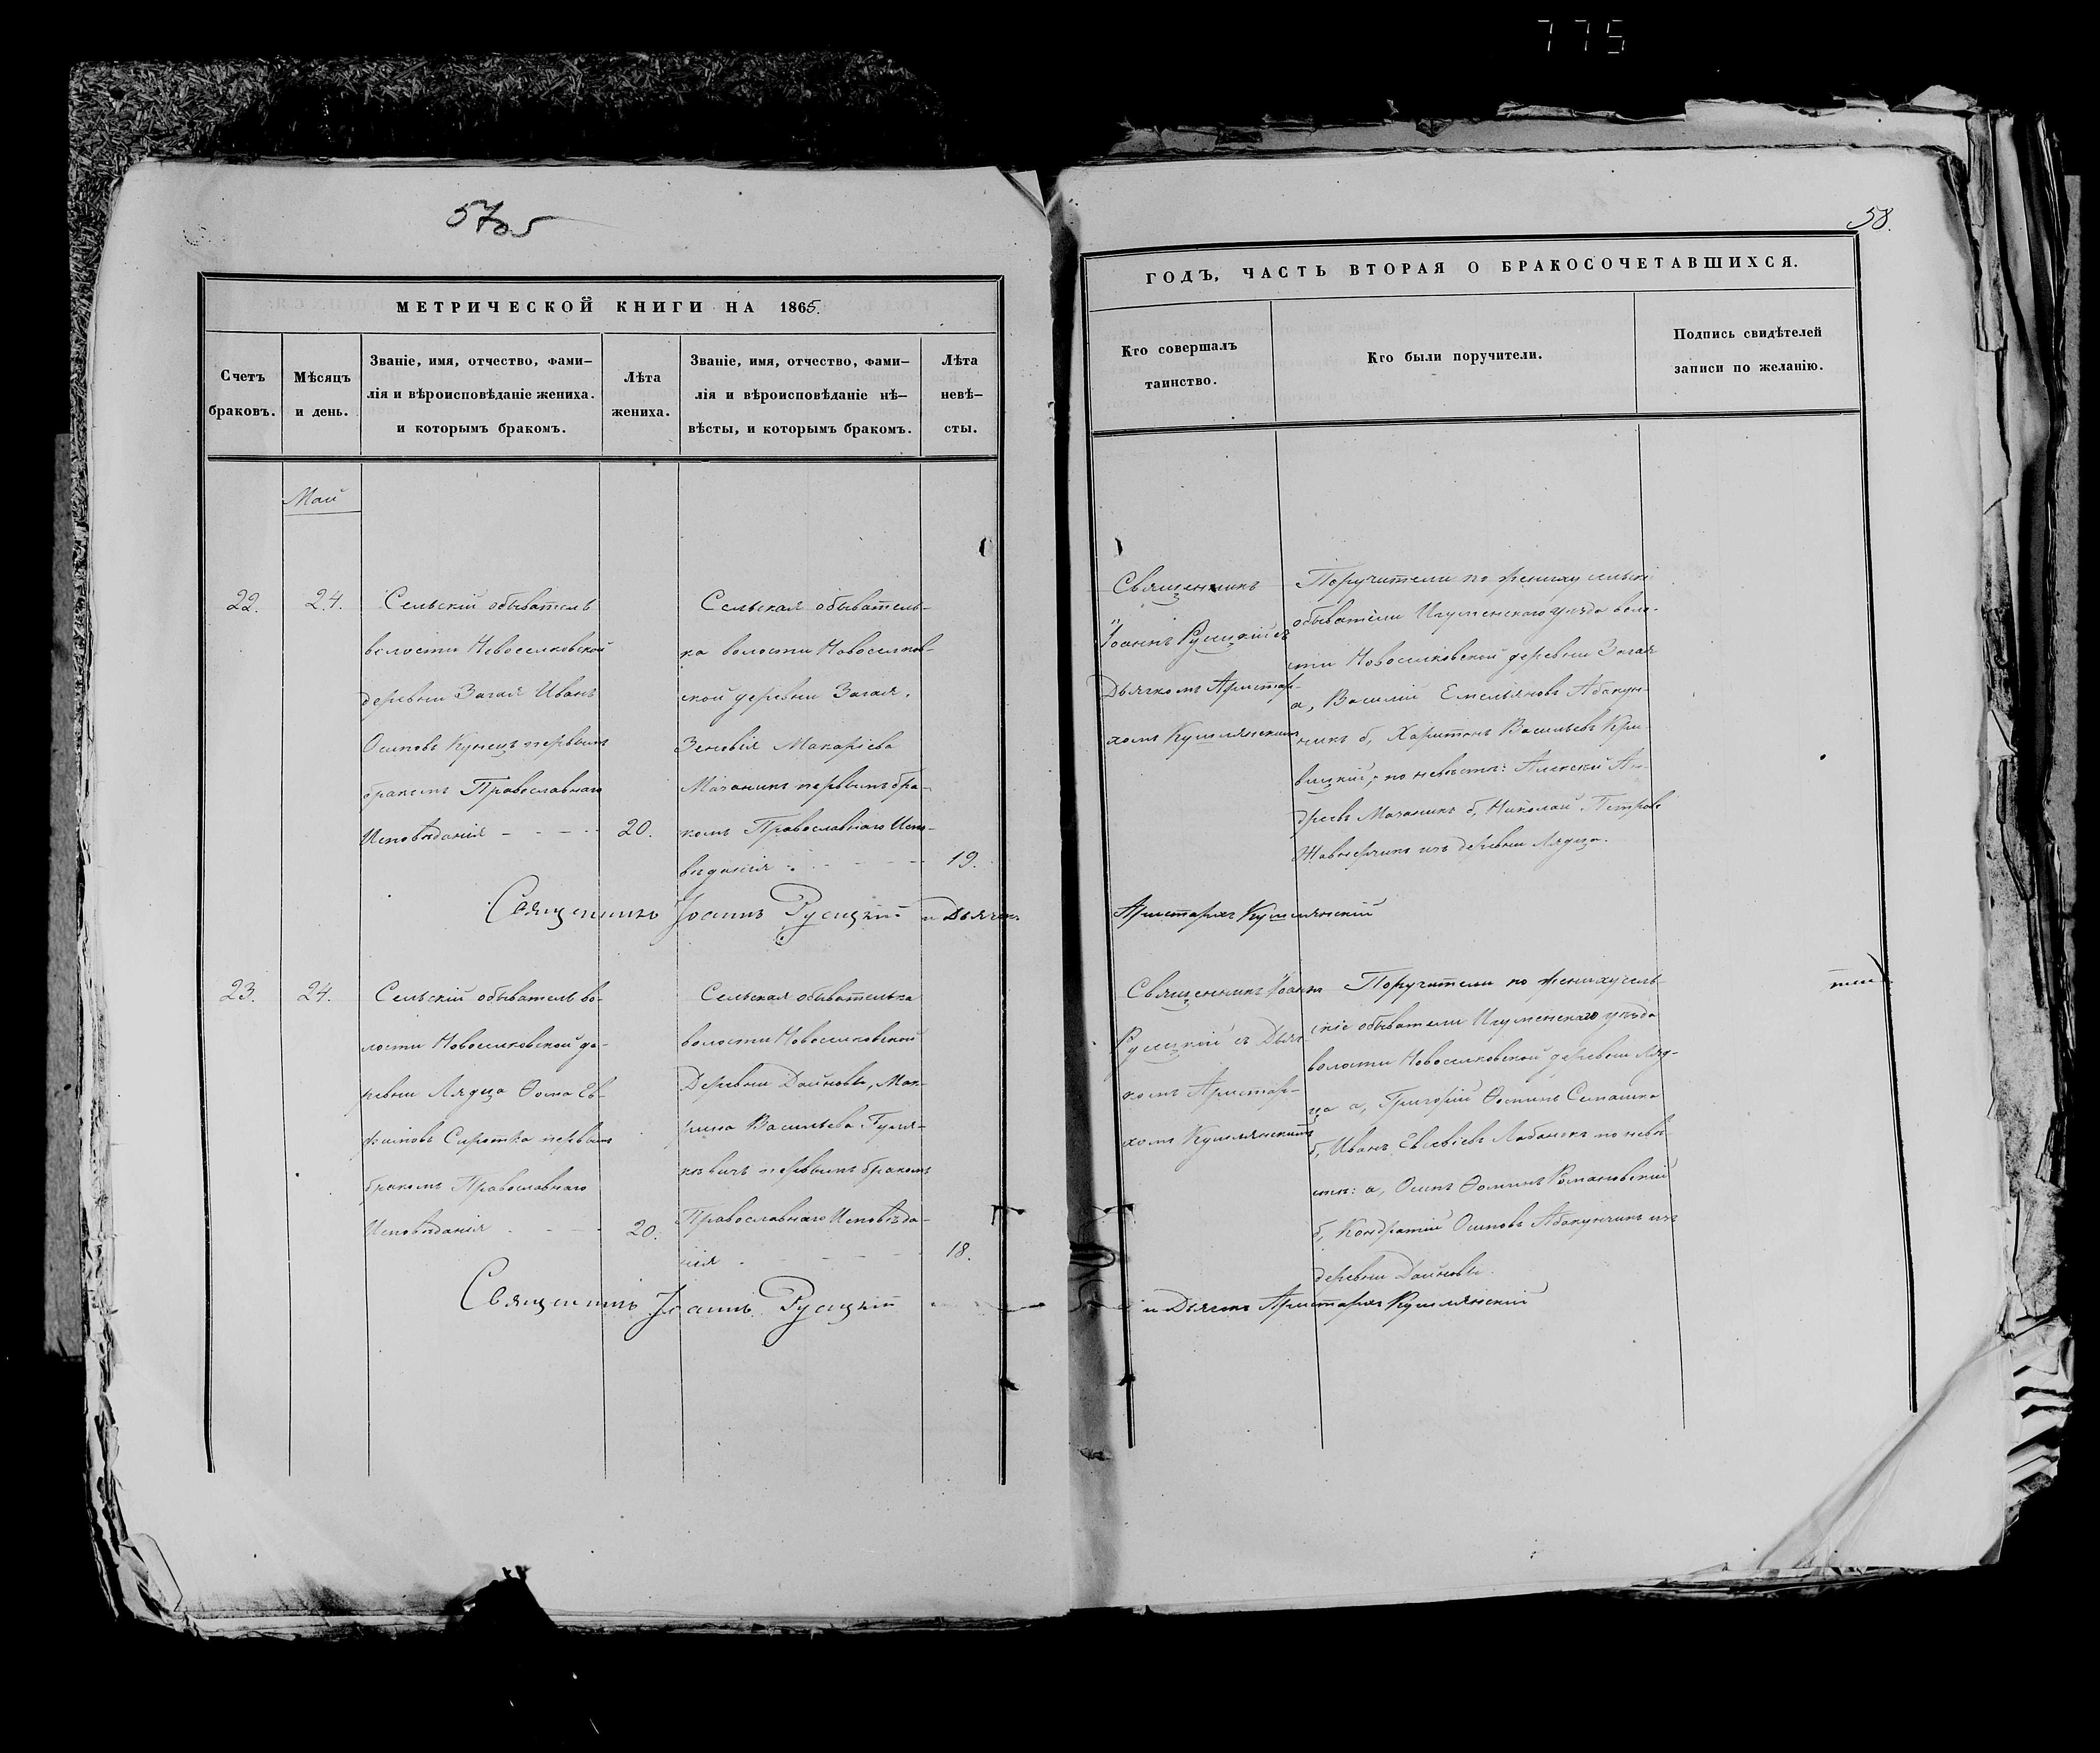 775
57об
МЕТРИЧЕСКОЙ КНИГИ НА 1865.
Счетъ
браковъ.
Мѣсяцъ
и день.
Званіе, имя, отчество, фами-
лія и вѣроисповѣданіе жениха.
и которымъ бракомъ.
Лѣта
жениха.
Званіе, имя, отчество, фами-
лія и вѣроисповѣданіе нѣ-
вѣсты, и которымъ бракомъ.
Лѣта
невѣ-
сты.
Май
22.
24.
Сельскій обыватель
волости Новоселковской
деревни Загая Иванъ
Осиповъ Кунецъ первымъ
бракомъ Православнаго
Исповѣданія
20.
Сельская обыватель-
ка волости Новоселков-
ской деревни Загая,
Зеновія Макаріева
Мачаникъ первымъ бра-
комъ Православнаго Испо-
вѣданія
19.
Священникъ Іоаннъ Русицкій и Дьячекъ
23.
24.
Сельскій обыватель во-
лости Новоселковской де-
ревни Лядца Ѳома Ев-
фимовъ Сиротка первымъ
бракомъ Православнаго
Исповѣданія
20.
Сельская обывателька
волости Новоселковской
Деревни Дайновы, Мак-
рина Васильева
первымъ бракомъ
Православнаго Исповѣда-
нія
18.
Священникъ Іоаннъ Русицкій
58.
ГОДЪ, ЧАСТЬ ВТОРАЯ О БРАКОСОЧЕТАВШИХСЯ.
Кто совершалъ
таинство.
Кто были поручители.
Подпись свидѣтелей
записи по желанію.
Священникъ
Іоаннъ Русицкій съ
Дьячкомъ Аристар-
хомъ Кушлянскимъ
Поручители по жениху сельскі
обыватели Игуменскаго уѣзда воло-
сти Новоселковской деревни Загая
а, Василій Емельяновъ Абакун-
чикъ б, Харитонъ Васильевъ Кри
вицкій, по невѣстѣ: Алексей Ан-
дреевъ Мачаникъ б, Николай Петровъ
Жавнерчикъ изъ деревни Лядца.
Аристархъ Кушлянскій
Священникъ Іоаннъ
Русицкій съ Дьяч
комъ Аристар-
хомъ Кушлянскимъ
Поручители по жениху сель-
скіе обыватели Игуменскаго уѣзда
волости Новоселковской деревни Ляд-
ца а, Григорій Ѳоминъ Семашко
б, Иванъ Евсевіевъ Лобанокъ по невѣ
стѣ: а, Осипъ Ѳоминъ Романовскій
б, Кондратій Осиповъ Абакунчикъ изъ
деревни Дайновы.
и Дьячекъ Аристархъ Кушлянскій